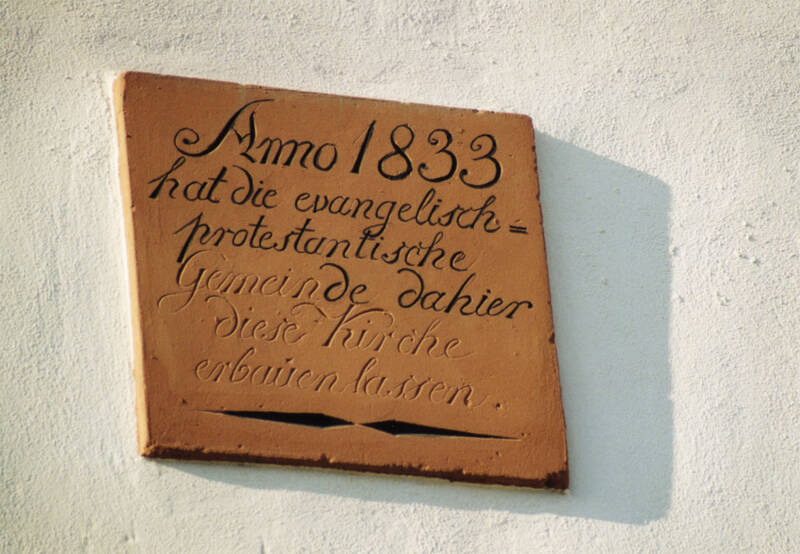 Anno 1833
hat die evangelisch=
protestantische
Gemeinde dahier
diese Kirche
erbauen lassen.